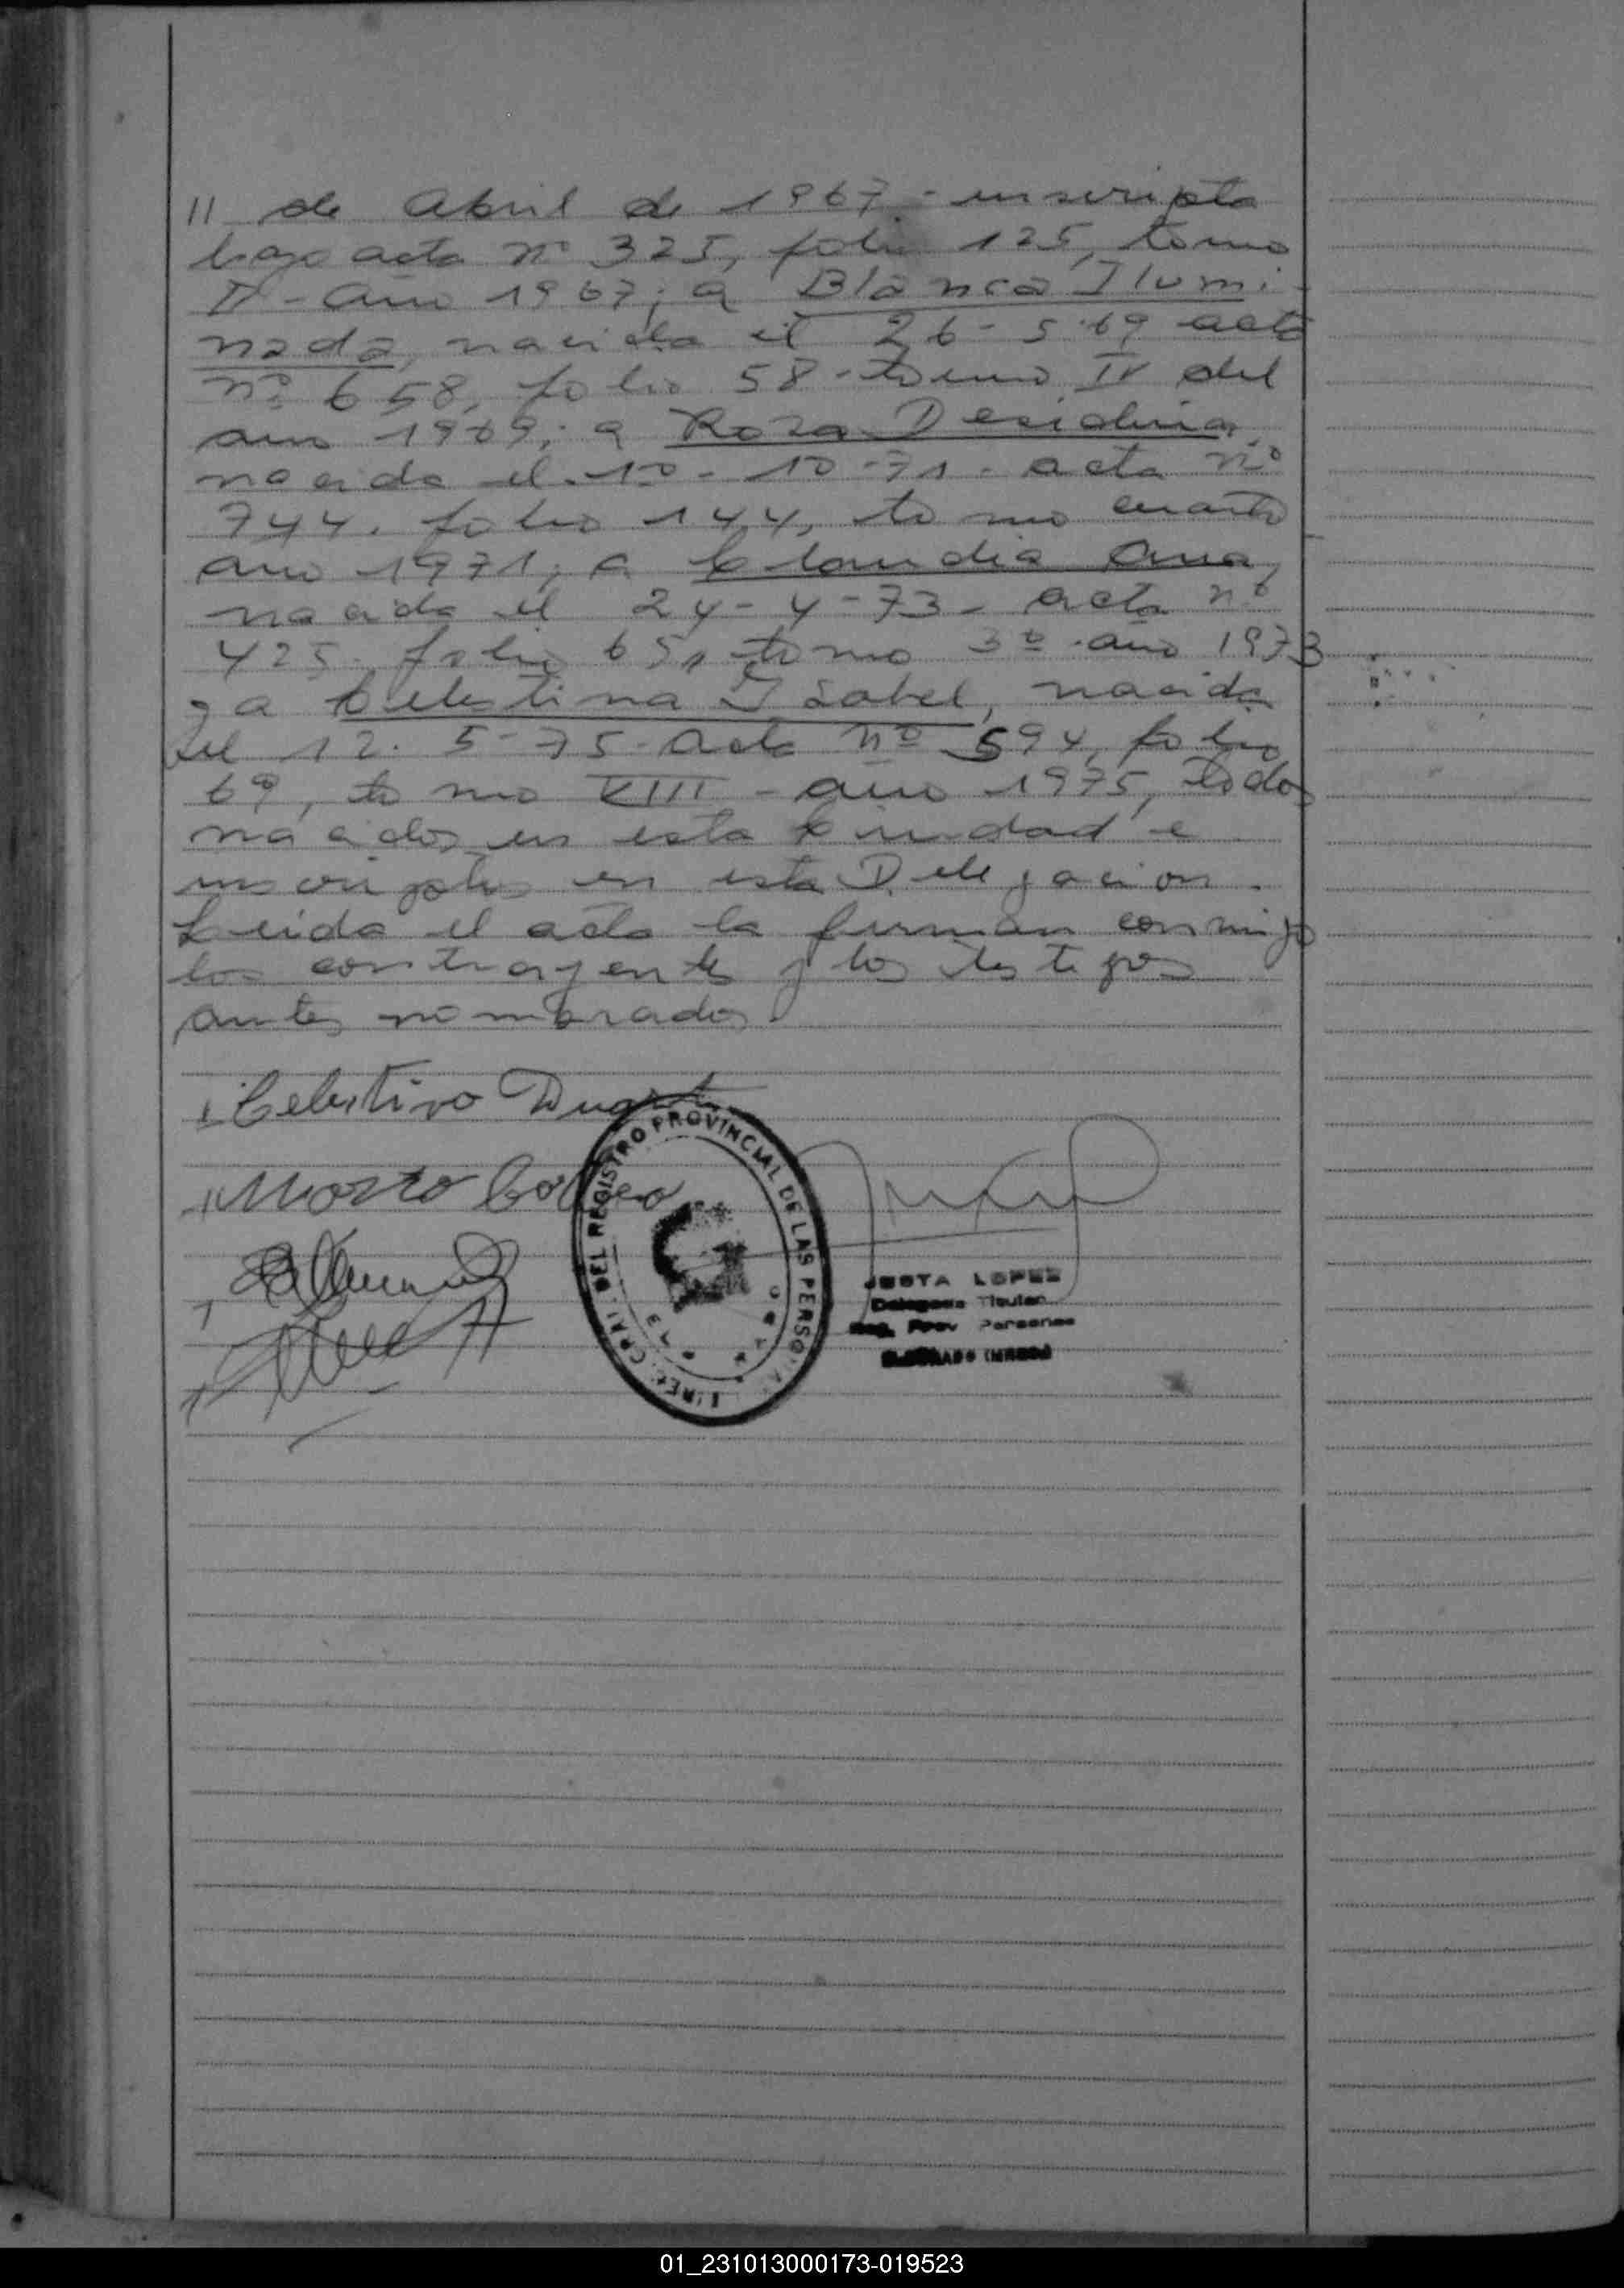 11 de Abril de 1967 - inscripta
bajo acta nº 325, folio 125, tomo
II - año 1967; a Blanca Ilumi-
nada, nacida el 26-5-69 acta
nº 658, folio 58 - tomo IV del
año 1969; a Rosa Desideria,
nacida el 10-10-71 - acta nº
744. folio 144, tomo cuarto
año 1971; a Claudia Ana,
nacida el 24-4-73 - acta nº
425 - folio 65, tomo 3º - año 1973
y a Celestina Isabel, nacida
el 12-5-75 - acta nº 594, folio
69, tomo VIII - año 1975, todos
nacidos en esta Ciudad e
inscriptos en esta Delegacion.
Leida el acta la firman conmigo
los contrayentes y los testigos
antes nombrados
Celestino Duarte
DIRECC GRAL. DEL REGISTRO PROVINCIAL DE LAS PERSONA
LOPEZ
Delegada Titular
Reg. Prov Personas